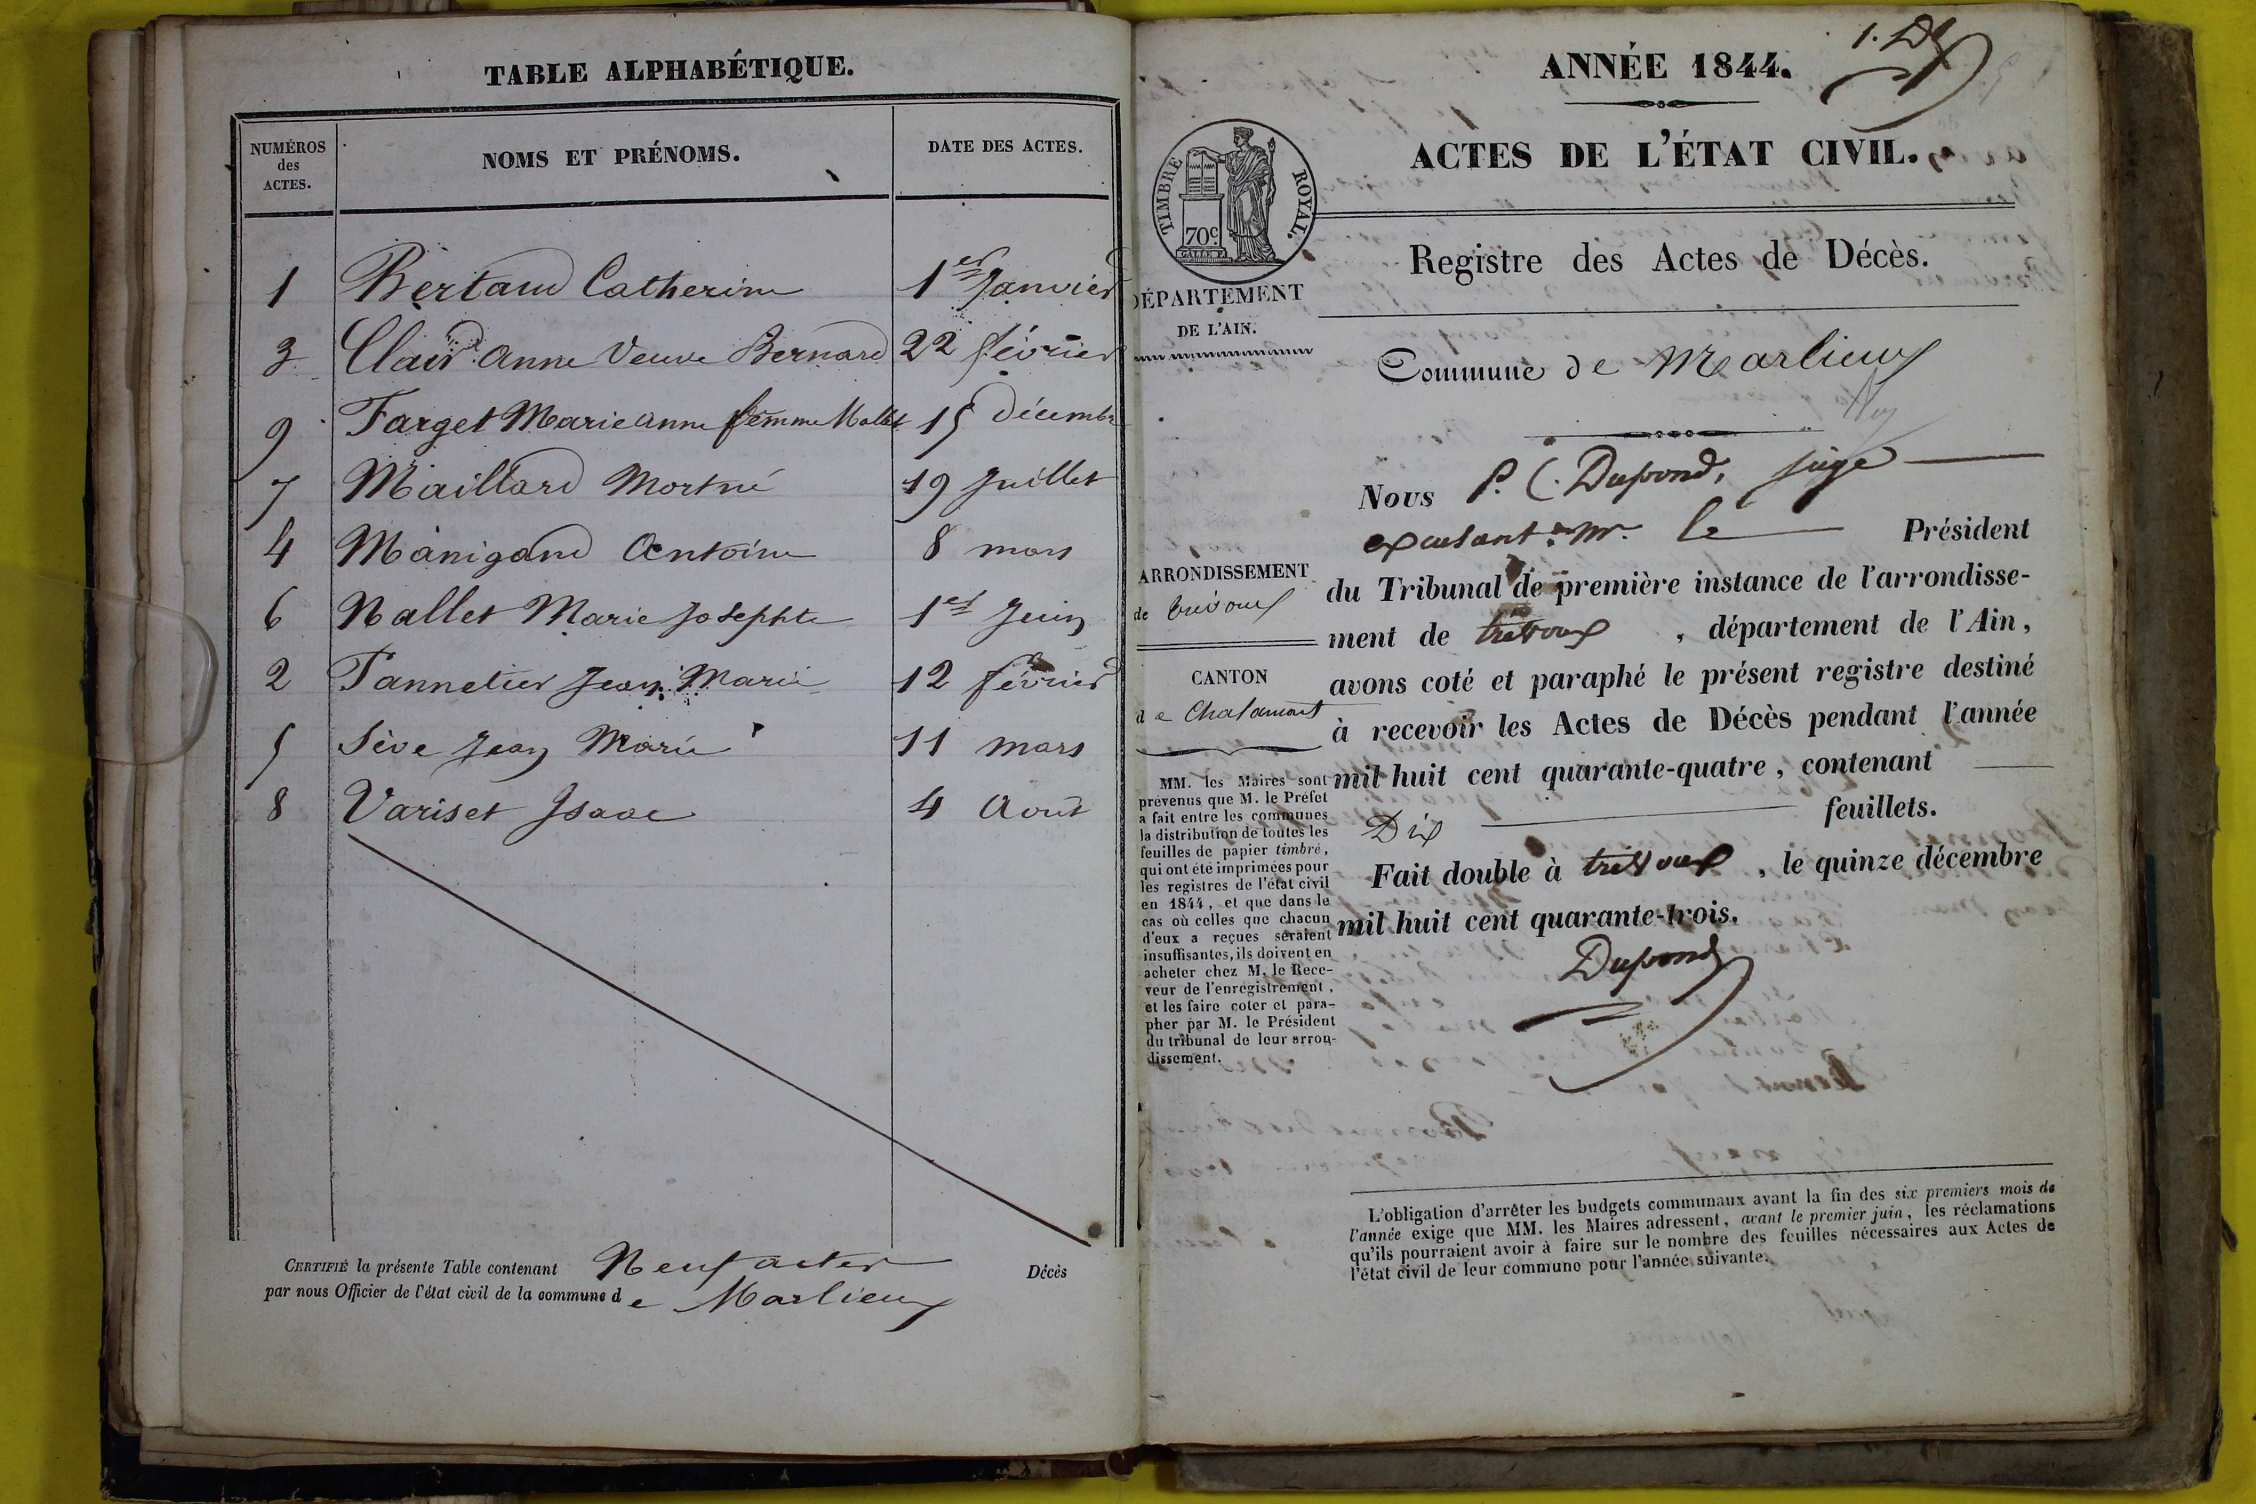 TABLE ALPHABÉTIQUE.
NUMÉROS
des
ACTES.
NOMS ET PRÉNOMS.
DATE DES ACTES.
1 Bertaud Catherine 1er Janvier
3 Clair Anne Veuve Bernard 22 février
9 Farget Marie anne femme Mallet 15 décembre
7 Maillard Mortné 19 Juillet
4 Manigand Antoine 8 mars
6 Nallet Marie Josephte 1er Juin
2 Pannetier Jean Marie 12 février
5 Sève Jean Marie 11 mars
8 Variset Isaac 4 Aout
CERTIFIÉ la présente Table contenant Neuf actes Décès
par nous Officier de l'état civil de la commune de Marlieux
ANNÉE 1844.
ACTES DE L'ÉTAT CIVIL.
TIMBRE ROYAL.
70c.
Registre des Actes de Décès.
DÉPARTEMENT
DE L'AIN.
Commune de Marlieux
Nous P. C. Dupond, juge
excusant mr. le Président
du Tribunal de première instance de l'arrondisse-
ment de trévoux, département de l'Ain,
avons coté et paraphé le présent registre destiné
à recevoir les Actes de Décès pendant l'année
mil huit cent quarante-quatre, contenant
Dix feuillets.
Fait double à trévoux, le quinze décembre
mil huit cent quarante-trois.
Dupond
ARRONDISSEMENT
de trévoux
CANTON
de Chalamont
MM. les Maires sont
prévenus que M. le Préfet
a fait entre les communes
la distribution de toutes les
feuilles de papier timbré,
qui ont été imprimées pour
les registres de l'état civil
en 1844, et que dans le
cas où celles que chacun
d'eux a reçues seraient
insuffisantes, ils doivent en
acheter chez M. le Rece-
veur de l'enregistrement,
et les faire coter et para-
pher par M. le Président
du tribunal de leur arron-
dissement.
L'obligation d'arrêter les budgets communaux avant la fin des six premiers mois de
l'année exige que MM. les Maires adressent, avant le premier juin, les réclamations
qu'ils pourraient avoir à faire sur le nombre des feuilles nécessaires aux Actes de
l'état civil de leur commune pour l'année suivante.